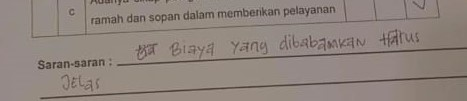 c ramah dan sopan dalam memberikan pelayanan
Saran-saran : Biaya yang dibabamkan Harus
Jelas